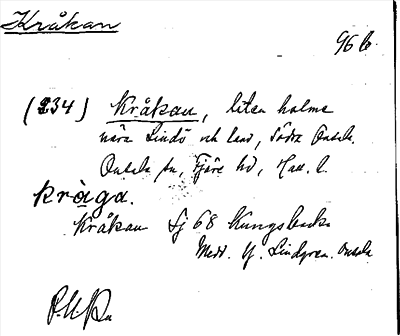 Kråkan
96 b.
(234) Kråkan, liten holme
nära Lindö och land, Södra Onsala.
Onsala sn, Fjäre hd, Hall. l.
kråga.
Kråkan Sj 68 Kungsbacka
Medd. Y. Lindgren. Onsala